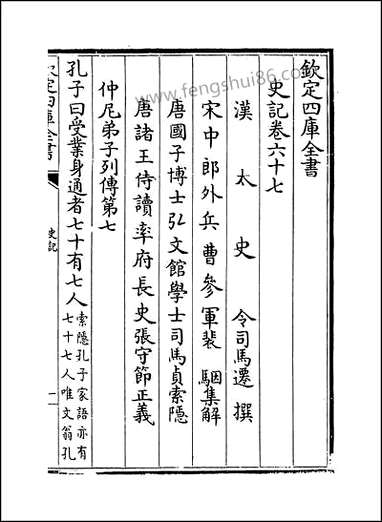 欽定四庫全書
史記卷六十七
漢太史令司馬遷撰
宋中郎外兵曹參軍裴駰集解
唐國子博士弘文館學士司馬貞索隱
唐諸王侍讀率府長史張守節正義
仲尼弟子列傳第七
孔子曰受業身通者七十有七人索隱孔子家語亦有
七十七人唯文翁孔
欽定四庫全書
史記
一
www.fengshui86.com